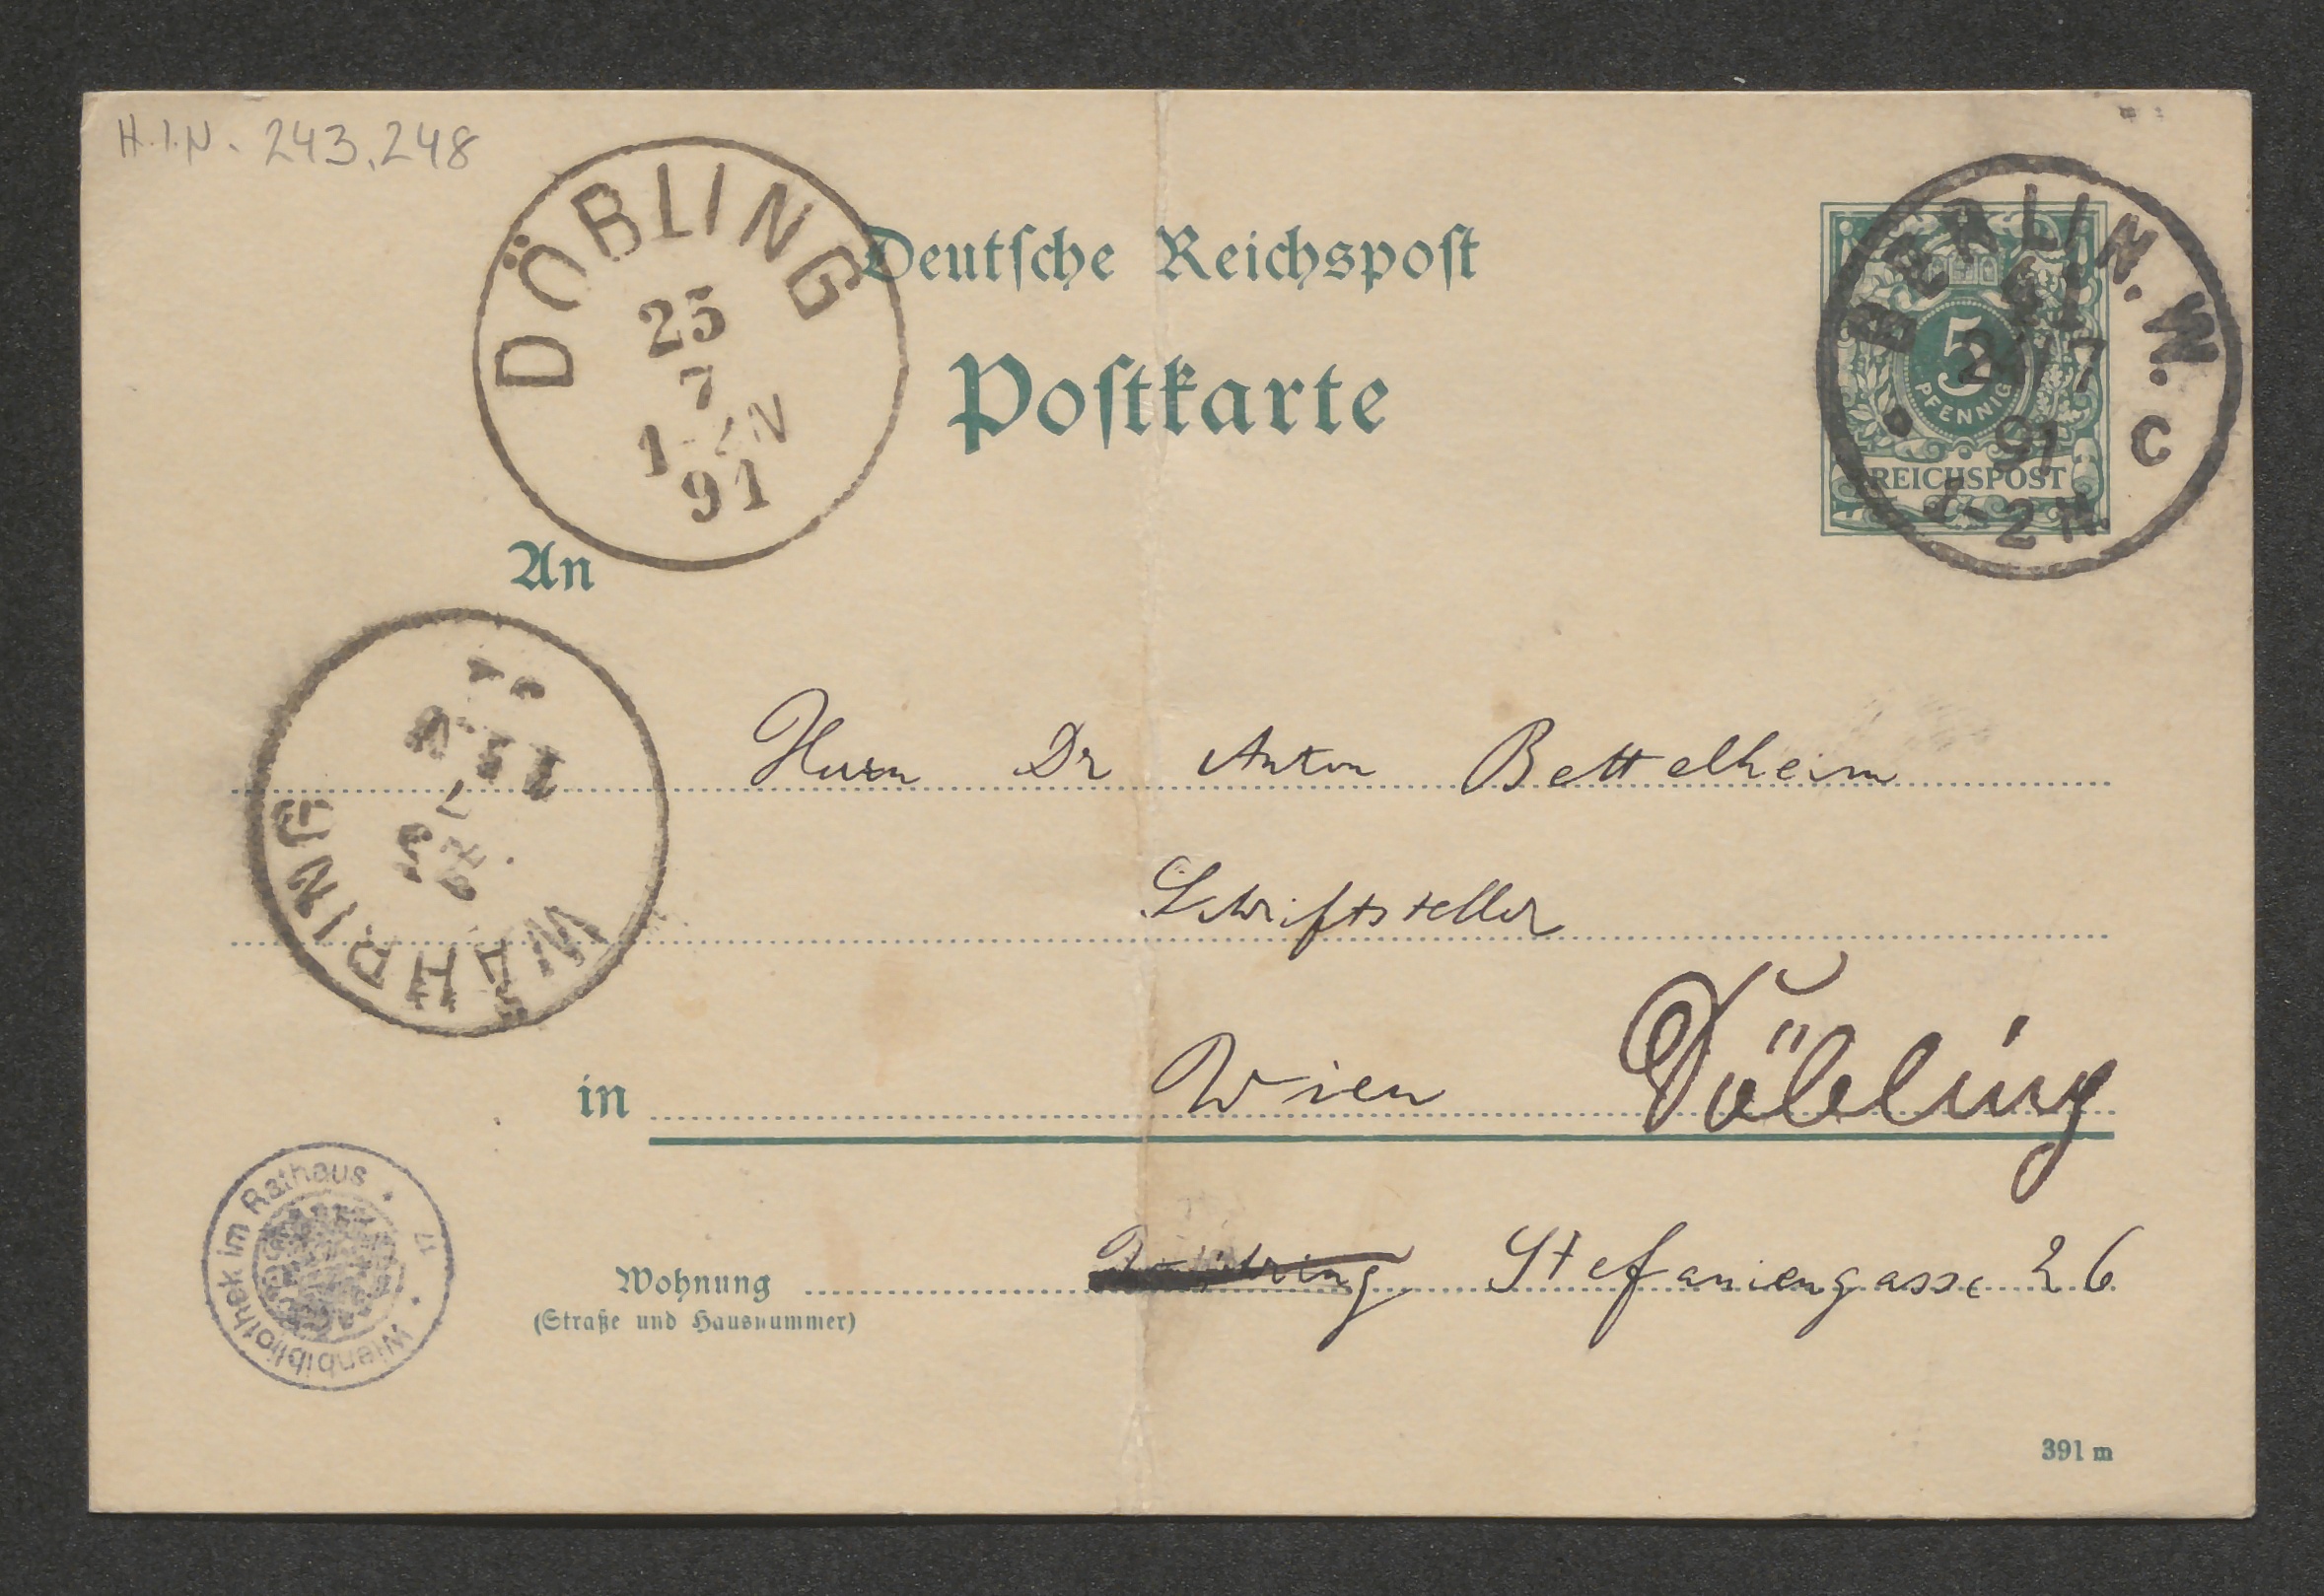 H.I.N. 243.248
DÖBLING
25
7
1-
91
Deutsche Reichspost
Postkarte
BERLIN. W.
24/7
91
1-2N
C
5
PFENNIG
REICHSPOST
An
WÄHRING
25
7
Herrn Dr Anton Bettelheim
Schriftsteller
in Wien Döbling
Wohnung Währing Stefaniengasse 26
(Straße und Hausnummer)
Wienbibliothek im Rathaus
391 m